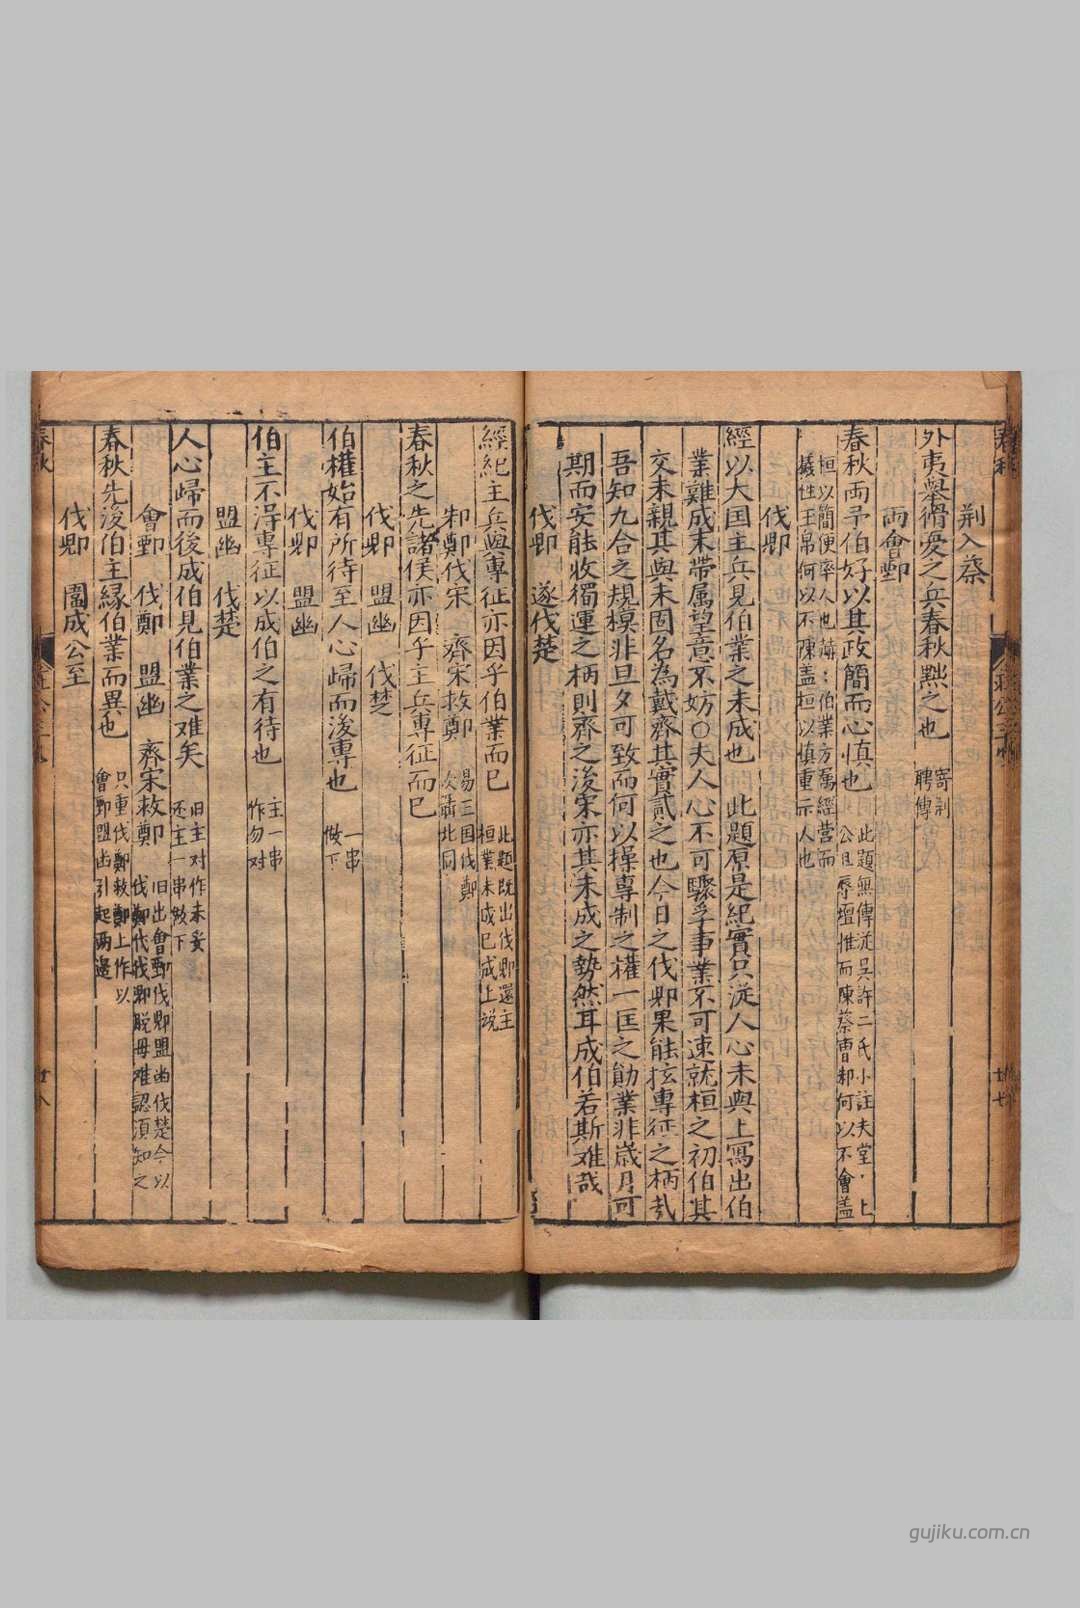 荆入蔡
外夷舉猾憂之兵春秋黙之也 寄制聘傳
两會鄄
春秋两予伯好以其政簡而心慎也 此題無傳従吴許二氏小註夫堂上公且辱壇推而陳蔡曹邾何以不會盖
桓以簡便率人也赫:伯業方属經營而犠性玉帛何以不陳盖桓以慎重示人也
伐郳
經以大国主兵見伯業之未成也 此題原是紀實只従人心未與上寫出伯
業雖成末帶属望意不妨〇夫人心不可驟孚事業不可速就桓之初伯其
交未親其與未固名為戴齊其實貳之也今日之伐郳果能㧓專征之柄哉
吾知九合之規模非旦夕可致而何以操專制之權一匡之勛業非歲月可
期而安能收獨運之柄則齊之後宋亦其未成之勢然耳成伯若斯难哉
伐郳 遂伐楚
經紀主兵與專征亦因乎伯業而已 此題既出伐郳還主桓業未成已成上説
邾鄭伐宋 齊宋救鄭 易三国伐鄭次聶北同
春秋之先諸侯亦因乎主兵專征而已
伐郳 盟幽 伐楚
伯權始有所待至人心歸而後專也 一串做下
伐郳 盟幽
伯主不淂專征以成伯之有待也 主一串作勿对
盟幽 伐楚
人心歸而後成伯見伯業之难矣 旧主对作未妥还主一串敘下
會鄄 伐鄭 盟幽 齊宋救鄭 旧出會鄄伐郳盟幽伐楚今以伐鄭代伐郳脱母难認須知之
春秋先後伯主縁伯業而異也 只重伐鄭救鄭上作以會鄄盟幽引起两邊
伐郳 圍成公至
春秋
廿七
春秋
廿八
gujiku.com.cn